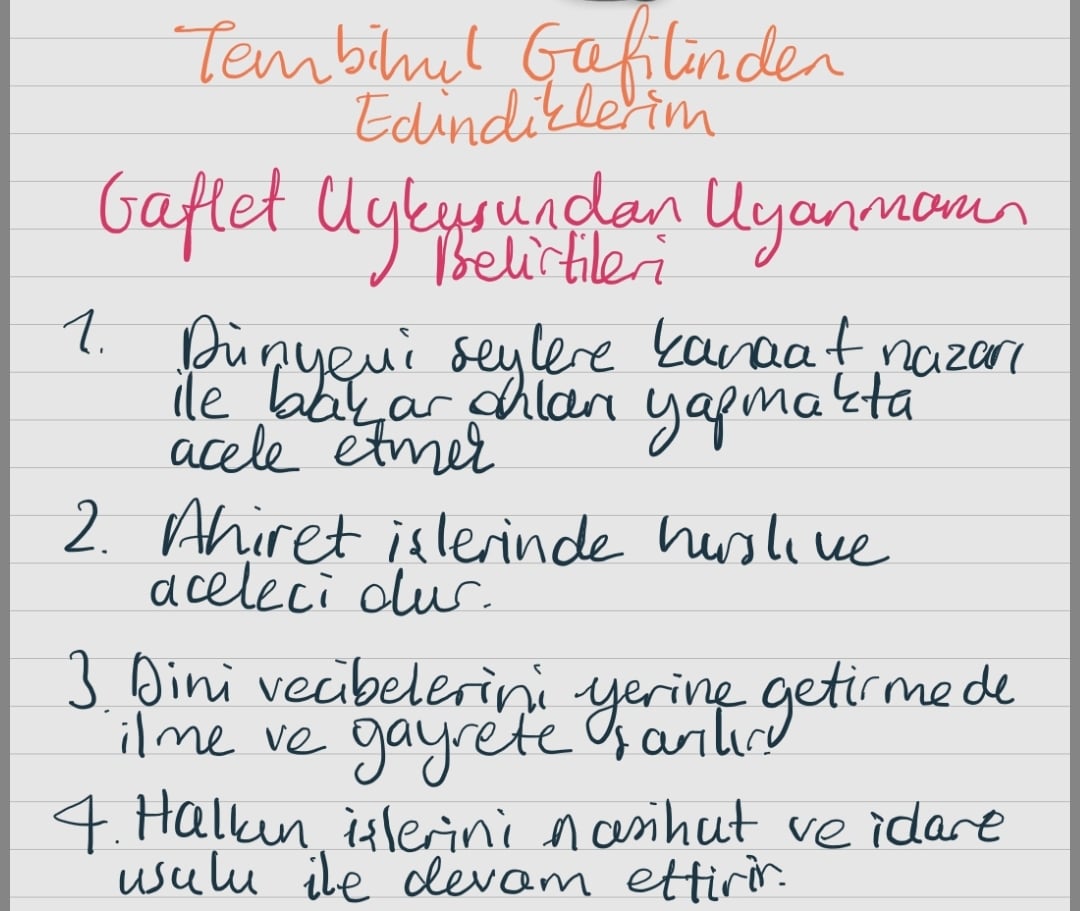 Tembihul Gafilinden
Edindiklerim
Gaflet Uykusundan Uyanmanın
Belirtileri
1. Dünyevi seylere kanaat nazarı
ile bakar onları yapmakta
acele etmez
2. Ahiret işlerinde hırslı ve
aceleci olur.
3. Dini vecibelerini yerine getirmede
ilme ve gayrete sarılır
4. Halkın işlerini nasihat ve idare
usulu ile devam ettirir.